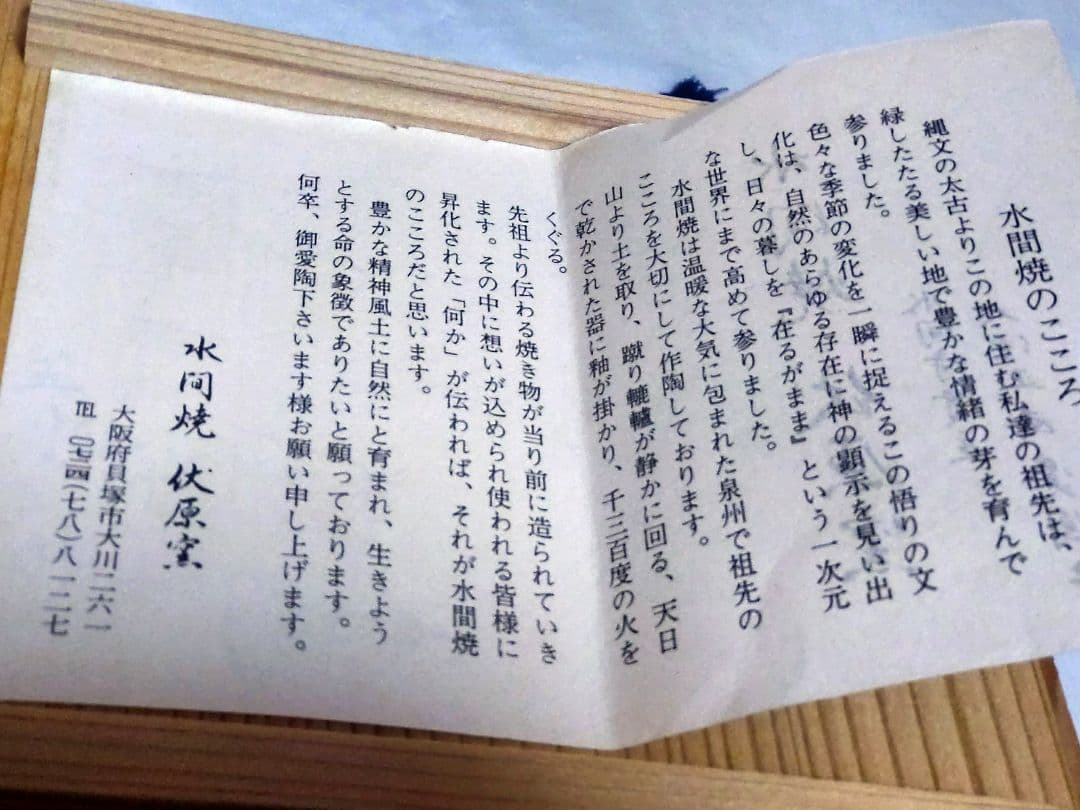 水間焼のこころ
縄文の太古よりこの地に住む私達の祖先は、
緑したたる美しい地で豊かな情緒の芽を育んで
参りました。
色々な季節の変化を一瞬に捉えるこの悟りの文
化は、自然のあらゆる存在に神の顕示を見い出
し、日々の暮しを『在るがまま』という一次元
な世界にまで高めて参りました。
水間焼は温暖な大気に包まれた泉州で祖先の
こころを大切にして作陶しております。
山より土を取り、蹴り轆轤が静かに回る、天日
で乾かされた器に釉が掛かり、千三百度の火を
くぐる。
先祖より伝わる焼き物が当り前に造られていき
ます。その中に想いが込められ使われる皆様に
昇化された「何か」が伝われば、それが水間焼
のこころだと思います。
豊かな精神風土に自然にと育まれ、生きよう
とする命の象徴でありたいと願っております。
何卒、御愛陶下さいます様お願い申し上げます。
水間焼 伏原窯
大阪府貝塚市大川二六一
℡ 〇七二四(七八)八一二七